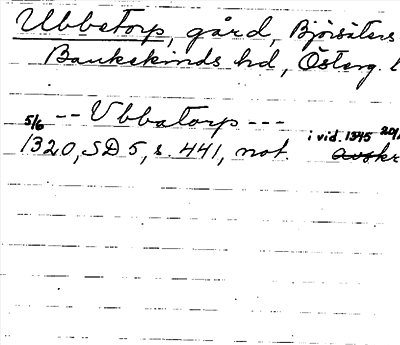 Ubbetorp, gård, Björsäters
Bankekinds hd, Österg. l
-- Ubbatorp ---
5/6 1320, SD 5, s. 441, not. i vid. 1345 20/